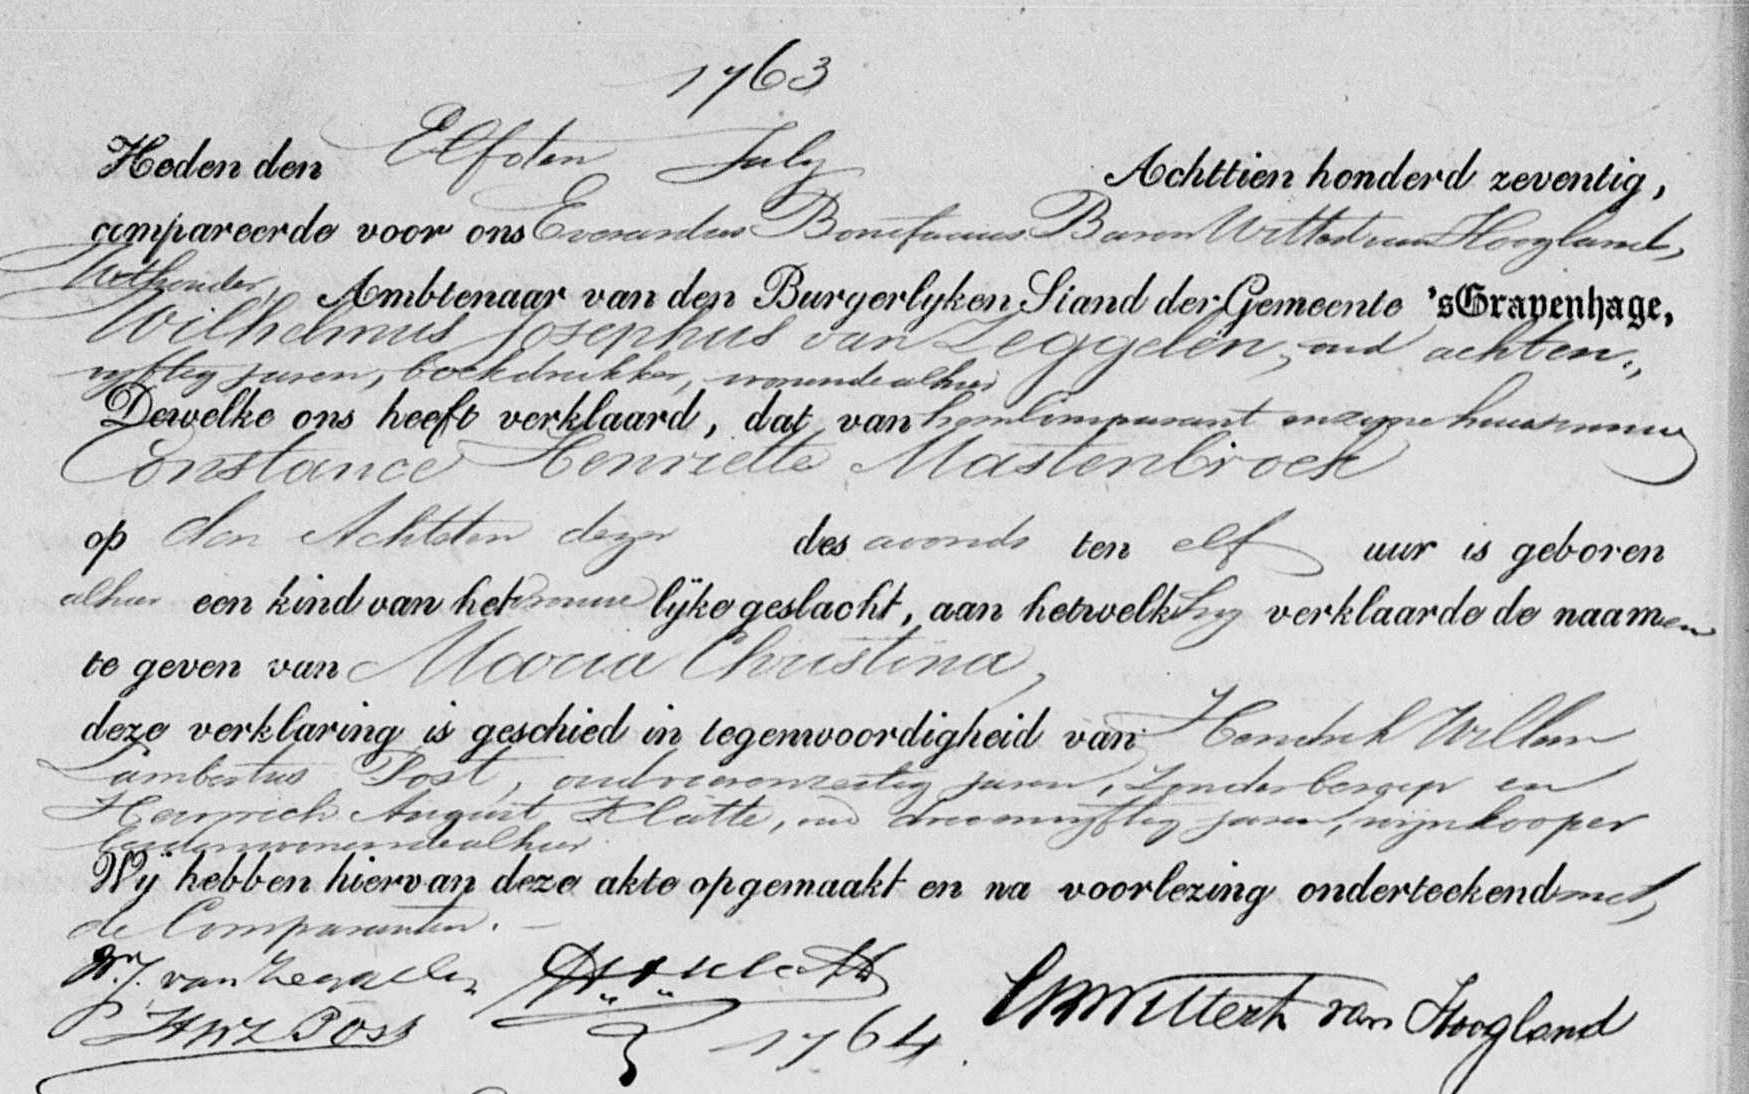 1763
Heden den Elfden July Achttien honderd zeventig,
compareerde voor ons Everardus Bonifacius Baron Wittert van Hoogland,
Wethouder, Ambtenaar van den Burgerlyken Stand der Gemeente 'sGravenhage,
Wilhelmus Josephus van Zeggelen, oud achten„
vyftig jaren, boekdrukker, wonende alhier
Dewelke ons heeft verklaard, dat van hem Comparant en zyne huisvrouw
Constance Henriette Mastenbroek
op den Achtsten dezer des avonds ten elf uur is geboren
alhier een kind van het vrouwelijke geslacht, aan hetwelk hy verklaarde de naamen
te geven van Maria Christina,
deze verklaring is geschied in tegenwoordigheid van Hendrik Willem
Lambertus Post, oud vierenzestig jaren, zonder beroep en
Heinrich August Klatte, oud drieenvyftig jaren, wijnkooper
beiden wonende alhier
Wij hebben hiervan deze akte opgemaakt en na voorlezing onderteekend met,
de Comparanten.
W. J. van Zeggelen
HWL Post
1764
EBWittert van Hoogland